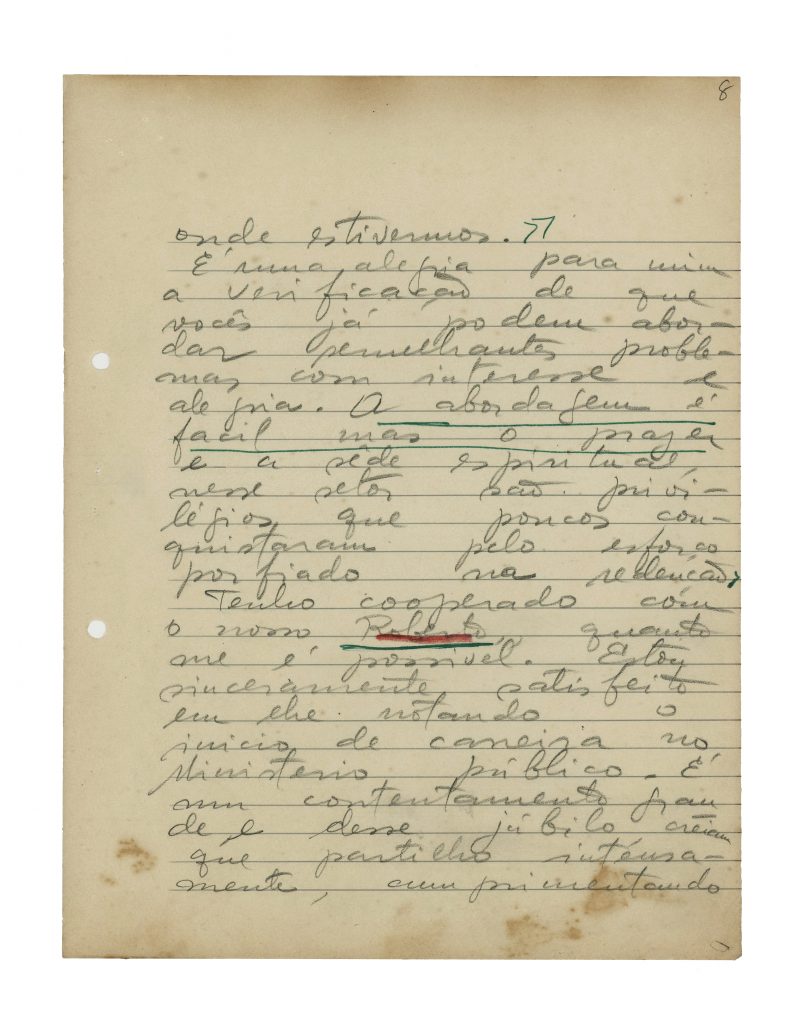 8
onde estivermos.
É uma alegria para mim
a verificação de que
vocês já podem abor-
dar semelhantes proble-
mas com interesse e
alegria. A abordagem é
facil mas o prazer
e a sêde espiritual,
nesse setor são privi-
légios que poucos con-
quistaram pelo esforço
porfiado na redenção
Tenho cooperado com
o nosso Roberto, quanto
me é possivel. Estou
sinceramente satisfeito
em lhe notando o
inicio de carreira no
Ministerio público. É
um contentamento gran
de e desse júbilo creiam
que partilho intensa-
mente, cumprimentando